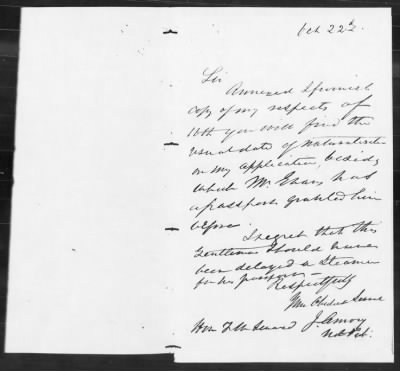 Oct 22d.
Sir
Annexed I furnish
copy of my respects of
16th you will find the
usual date of Naturalization
on my application, besides
which Mr Evans has
a passport granted him
before.
I regret that this
Gentleman should have
been delayed a Steamer
for his passport—
Respectfully
Your Obedient Servt
J. Amory
Hon F W Seward